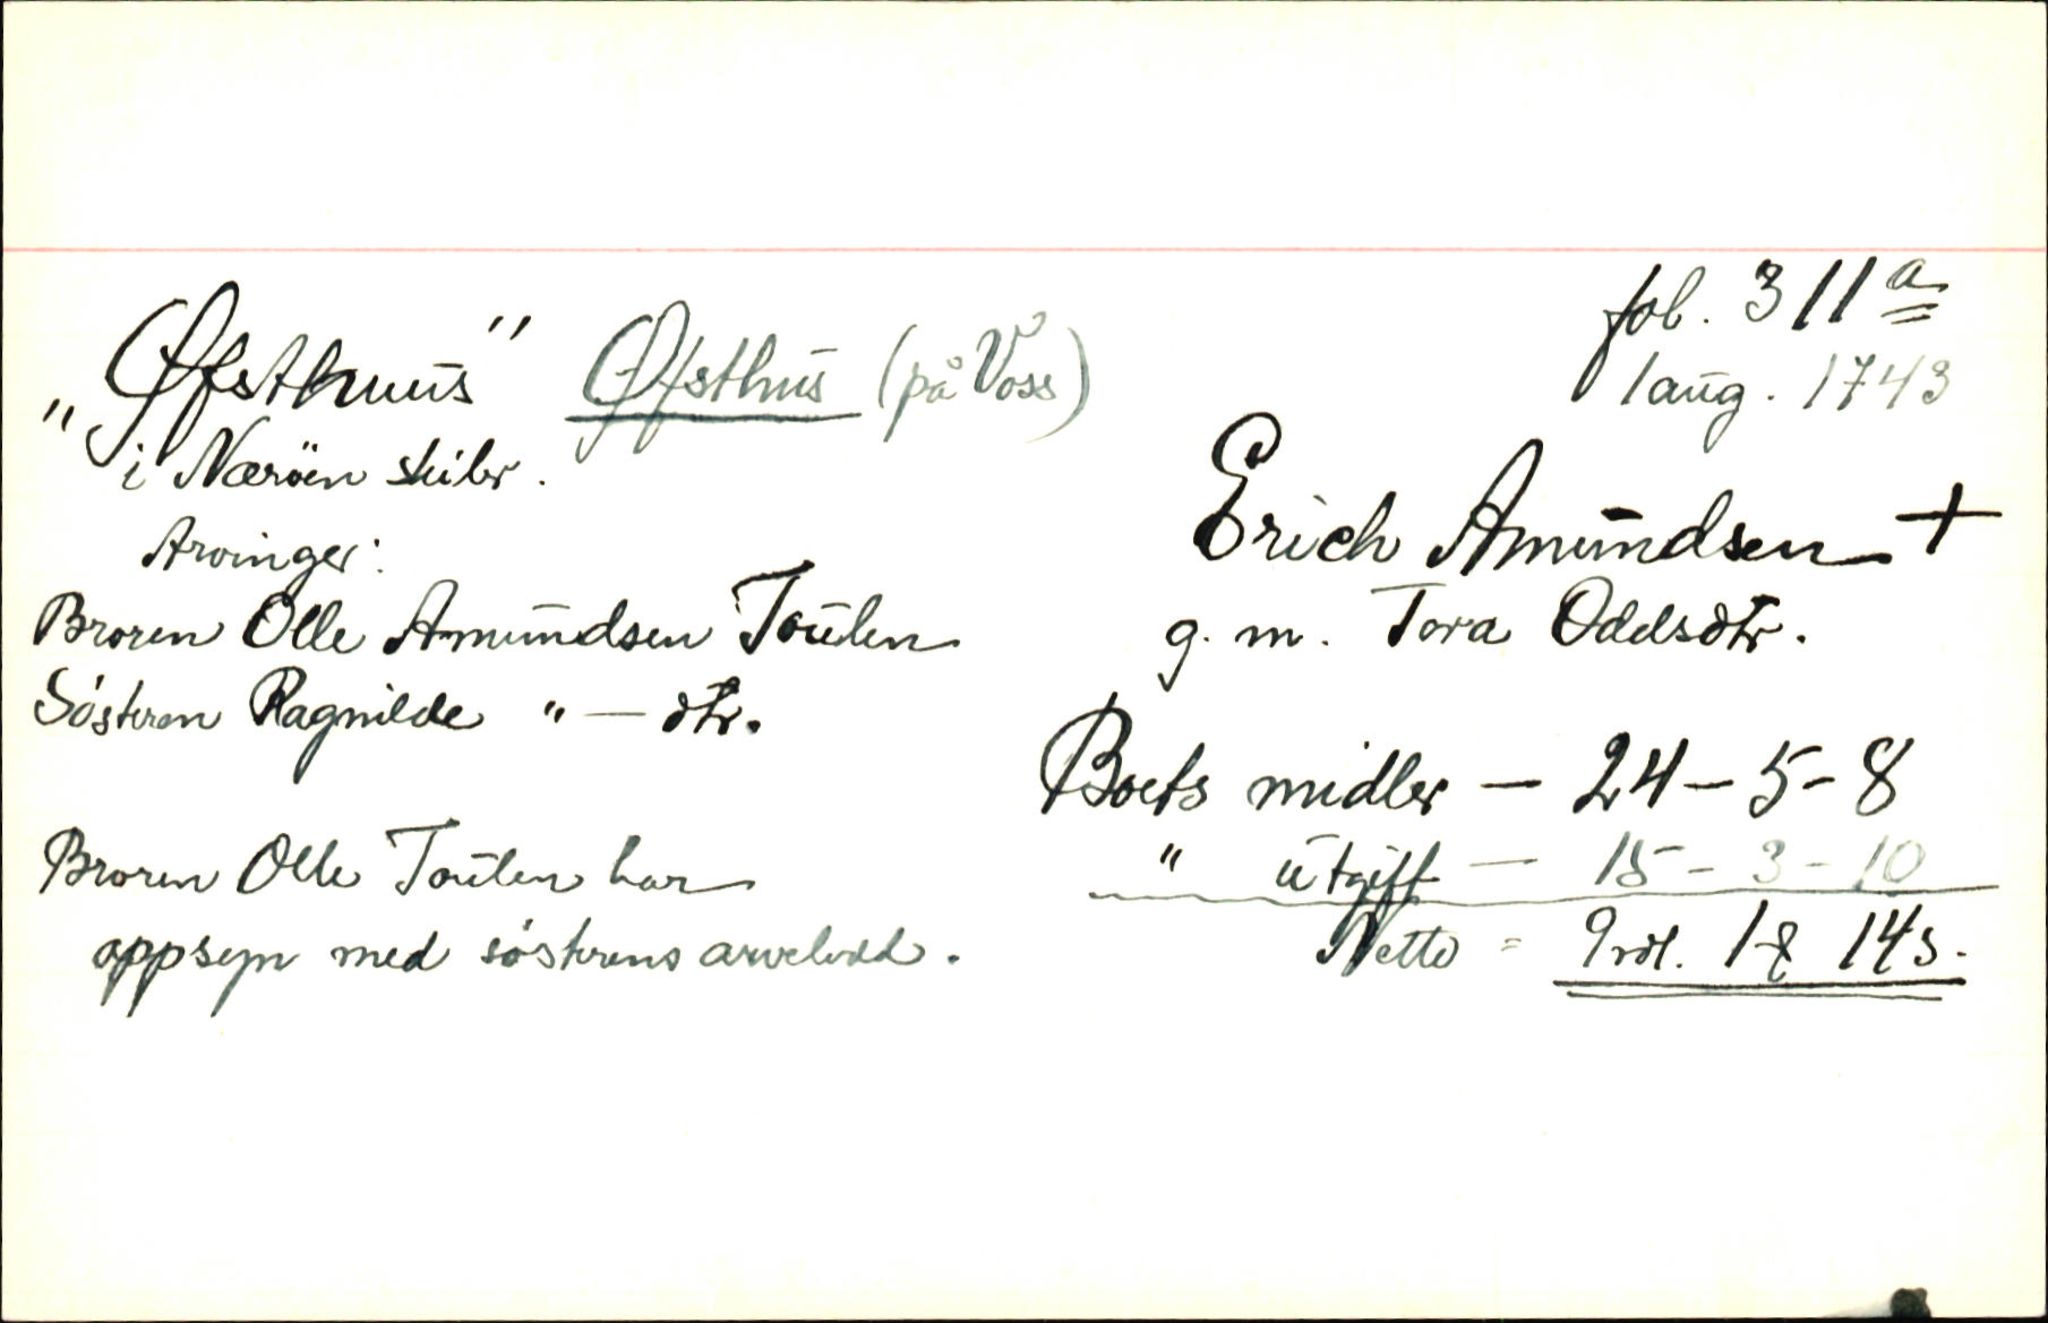 fol. 311a
1 aug. 1743
"Øfsthuus" Øfsthus (på Voss)
i Nærøen skibr.
Erich Amundsen +
g. m. Tora Oddsdtr.
Arvinger:
Broren Olle Amundsen Toulen
Søsteren Ragnilde " — dtr.
Boets midler — 24 - 5 - 8
" utgift — 15 - 3 - 10
Netto = 9 rdl. 1 14 s.
Broren Olle Toulen har
oppsyn med søsterens arvelodd.